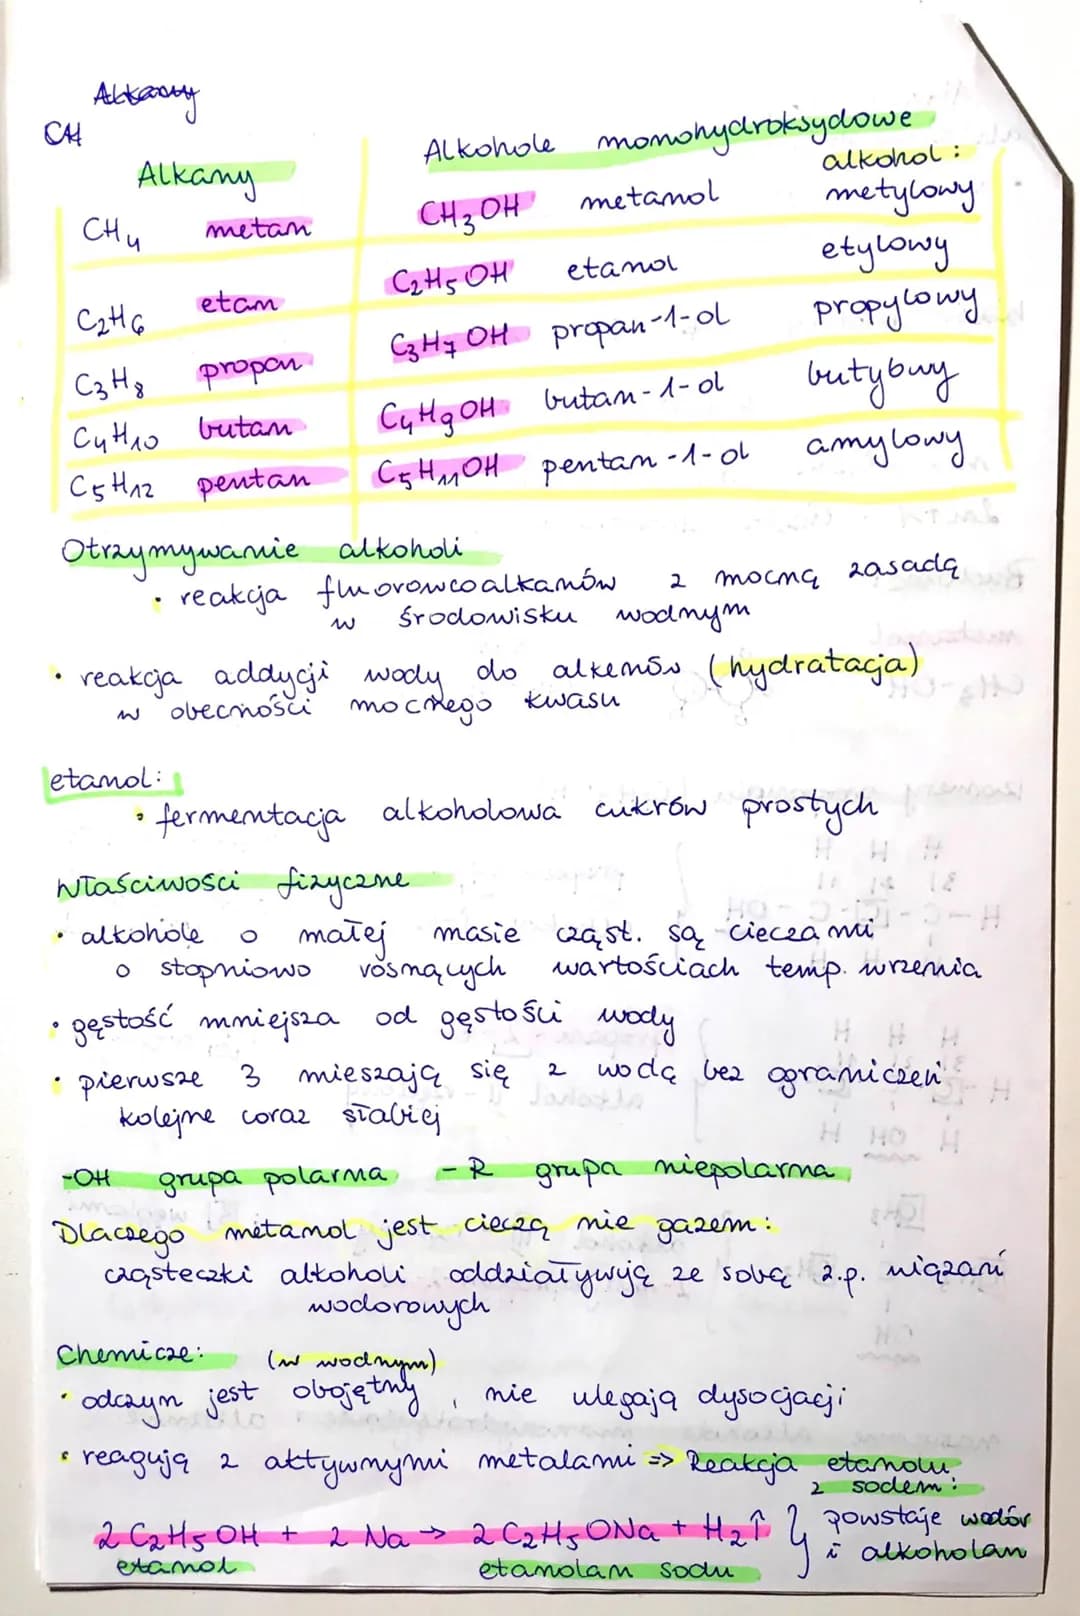 Alkany
CH
Alkany
Alkohole monohydroksydowe
alkohol:
CH₄ metan CH₃OH metanol metylowy
C₂H₆ etan C₂H₅OH etanol etylowy
C₃H₈ propan C₃H₇OH propan-1-ol propylowy
C₄H₁₀ butan C₄H₉OH butan-1-ol butylowy
C₅H₁₂ pentan C₅H₁₁OH pentan-1-ol amylowy
Otrzymywanie alkoholi
• reakcja fluorowcoalkanów z mocną zasadą
w środowisku wodnym
• reakcja addycji wody do alkenów (hydratacja)
w obecności mocnego kwasu
etanol:
• fermentacja alkoholowa cukrów prostych
Właściwości fizyczne
• alkohole o małej masie cząst. są cieczami
o stopniowo rosnących wartościach temp. wrzenia
• gęstość mniejsza od gęstości wody
• pierwsze 3 mieszają się z wodą bez ograniczeń
kolejne coraz słabiej
-OH grupa polarna -R grupa niepolarna
Dlaczego metanol jest cieczą nie gazem:
cząsteczki alkoholi oddziaływują ze sobą z.p. wiązań
wodorowych
Chemicze: (w wodnym)
• odczyn jest obojętny, nie ulegają dysocjacji
• reagują z aktywnymi metalami => Reakcja etanolu
z sodem:
2 C₂H₅OH + 2 Na → 2 C₂H₅ONa + H₂↑ } powstaje wodór
etanol etanolan sodu i alkoholan